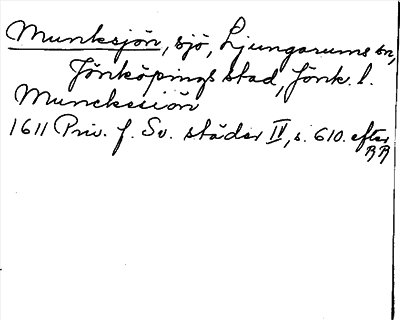 Munksjön, sjö, Ljungarums sn,
Jönköpings stad, Jönk. l.
Munckssiön
1611 Priv. f. Sv. städer IV, s. 610. efter
RR